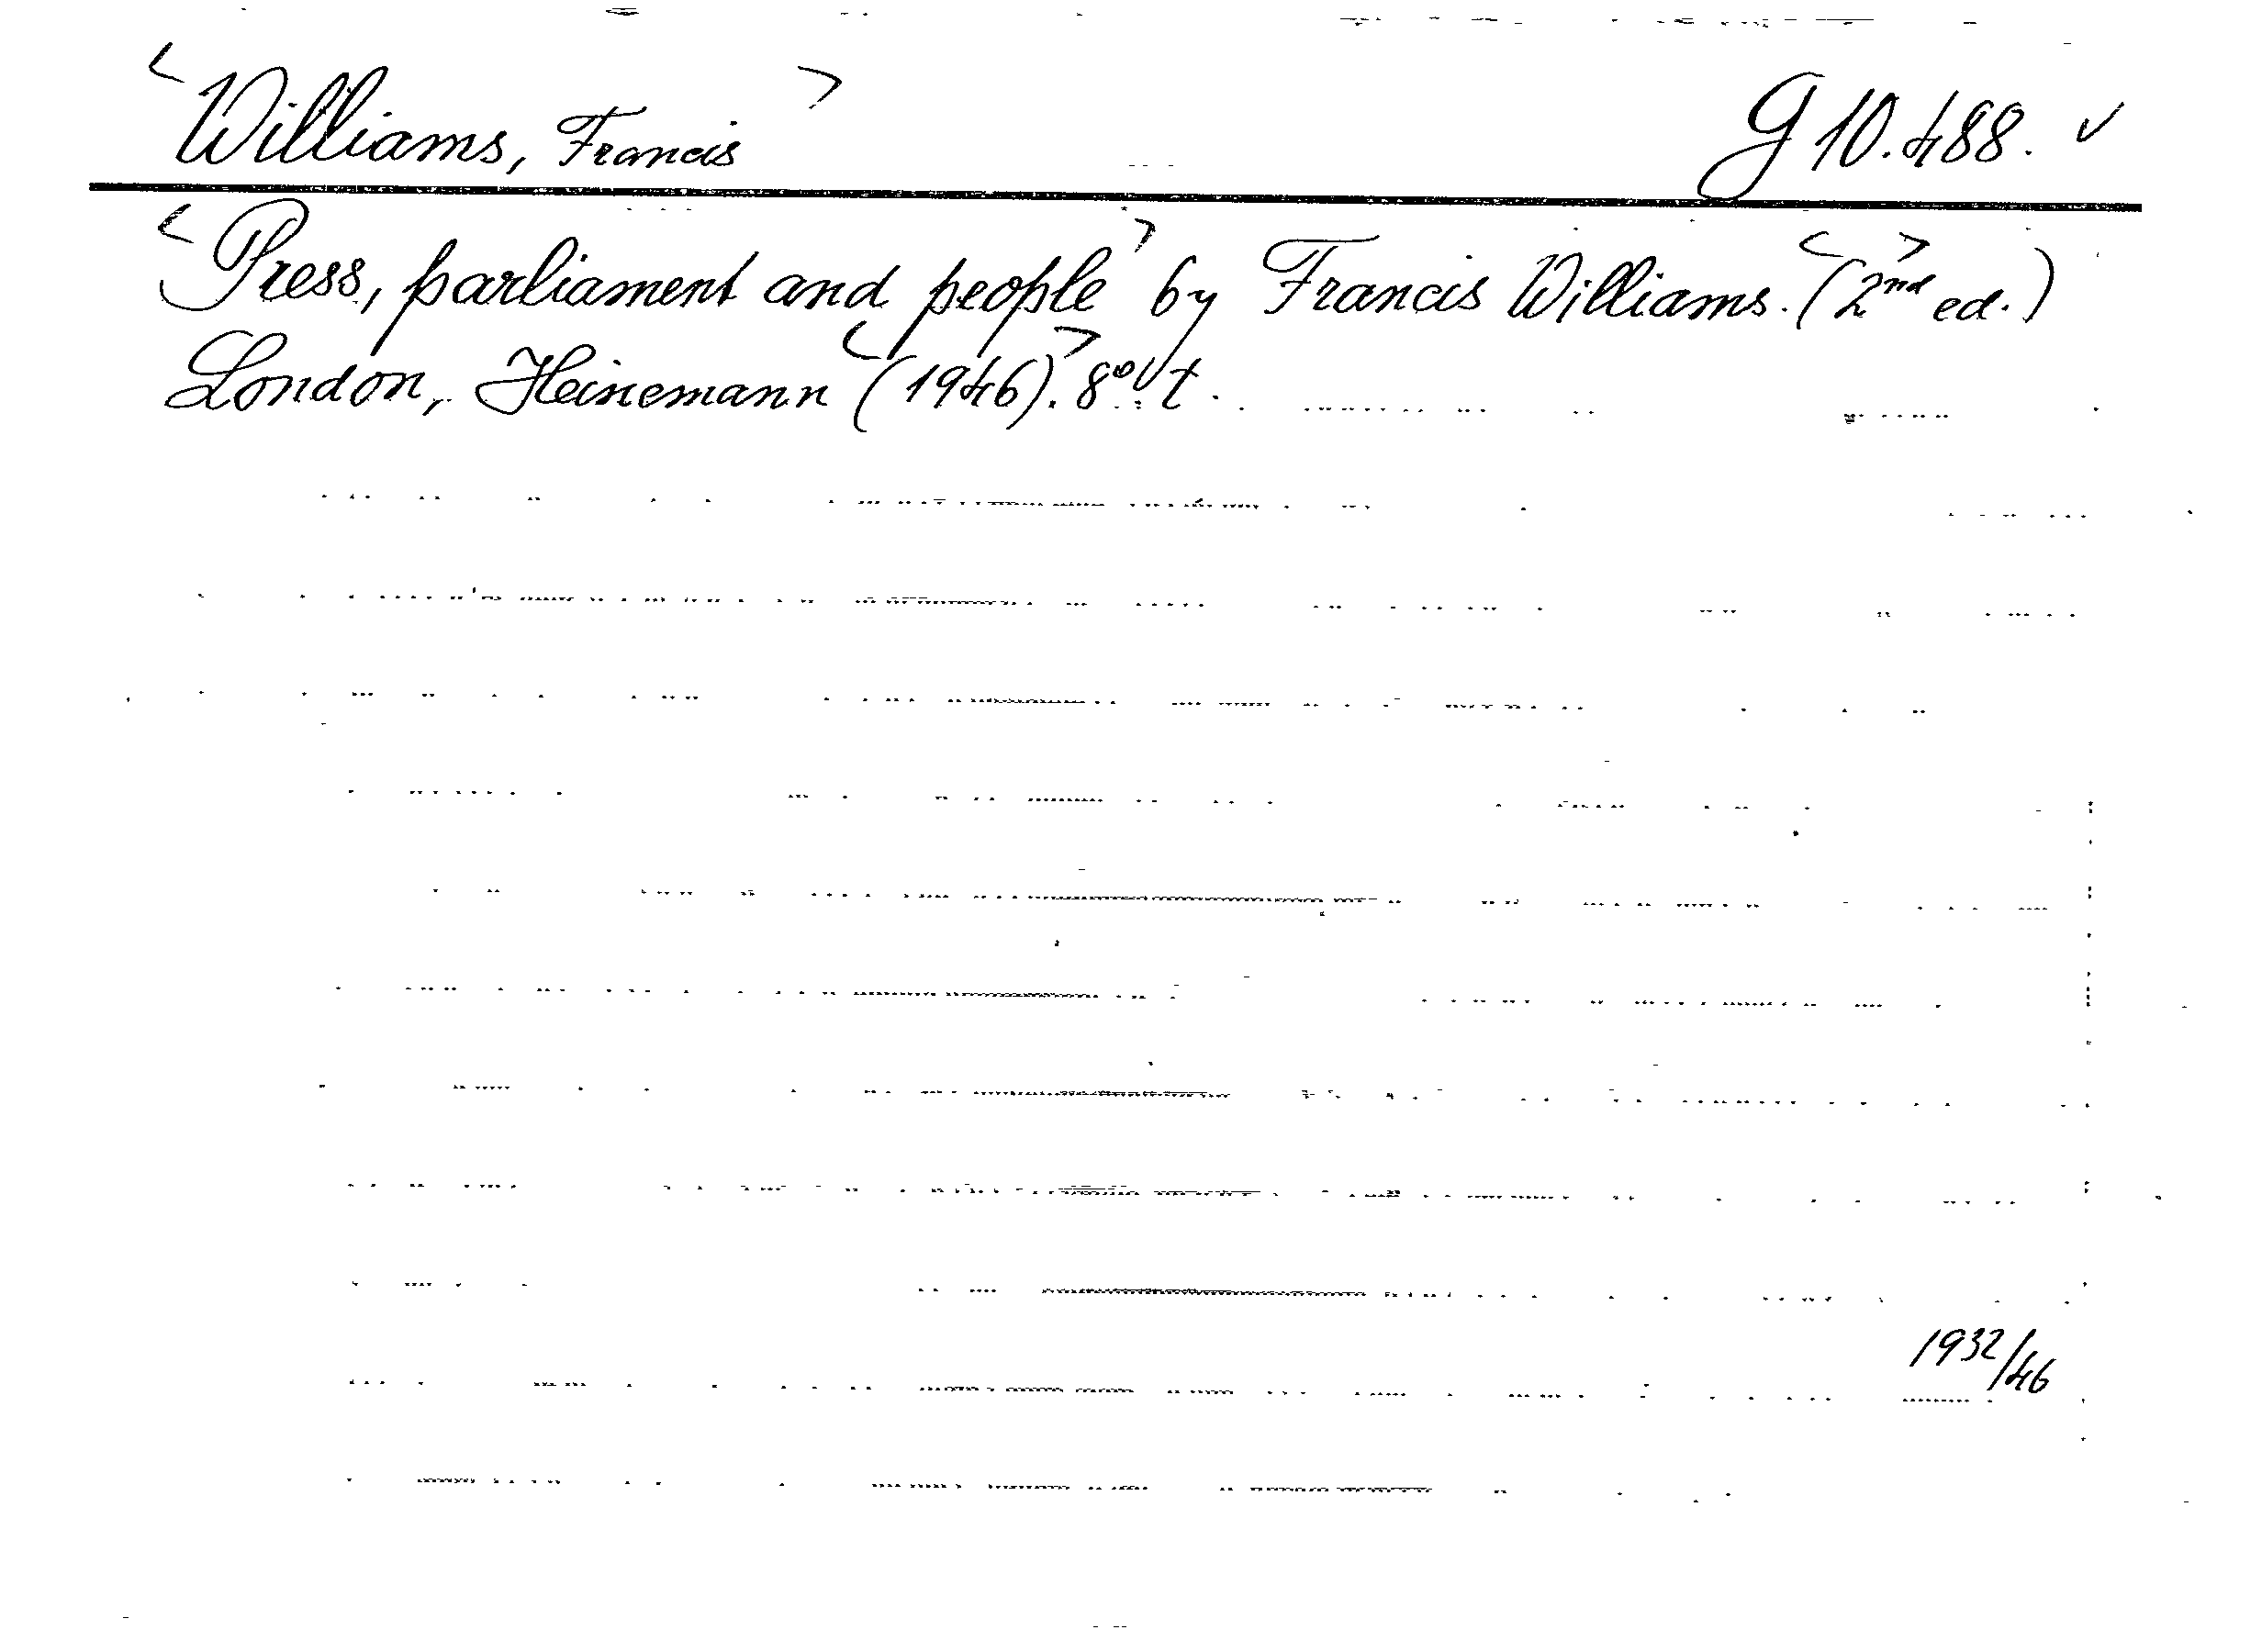 <Williams, Francis> G 10.488. ✓
<Press, parliament and people> by Francis Williams. <(2nd> ed.)
London, Heinemann <(1946)>. 8° t.
1932/46